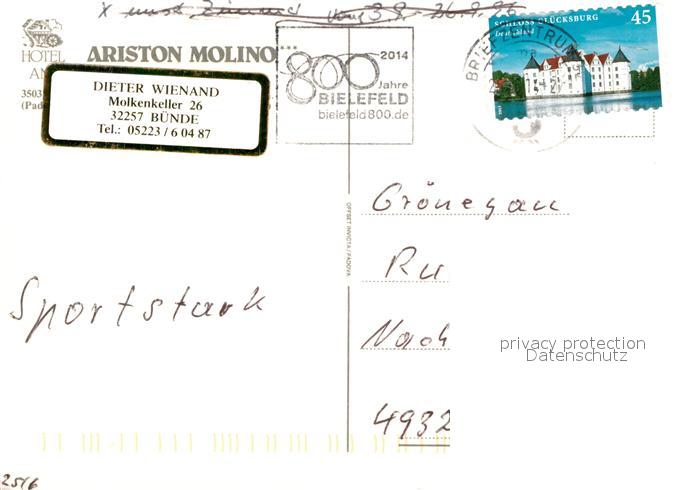 HOTEL
ARISTON MOLINO***
3503
(Pad
DIETER WIENAND
Molkenkeller 26
32257 BÜNDE
Tel.: 05223/6 04 87
2014
800
Jahre
BIELEFELD
bielefeld800.de
BRIEFZENTRUM
SCHLOSS GLÜCKSBURG 45
Deutschland
OFFSET INVICTA / PADOVA
Grönegau
Ru
Nach
4932
Sportstark
privacy protection
Datenschutz